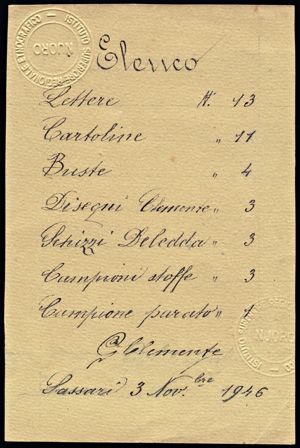 ISTITUTO SUPERIORE REGIONALE ETNOGRAFICO
NUORO
Elenco
Lettere N. 13
Cartoline " 11
Buste " 4
Disegni Clemente " 3
Schizzi Deledda " 3
Campioni stoffe " 3
Campione parato " 1
GClemente
Sassari 3 Nov.bre 1946
NUORO